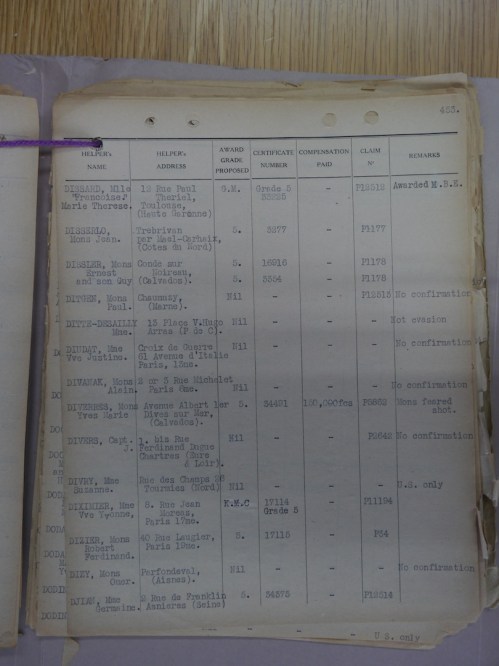 453.
HELPER'S NAME HELPER'S ADDRESS AWARD GRADE PROPOSED CERTIFICATE NUMBER COMPENSATION PAID CLAIM Nº REMARKS
DISSARD, Mlle 12 Rue Paul G.M. Grade 5 - P12512 Awarded M.B.E.
"Francoise"
Marie Therese. Toulouse,
(Haute Garonne)
Trebrivan 5. 3277 - P1177
Mons Jean. par Mael-Carhaix,
(Cotes du Nord)
DISSLER, Mons Conde sur 5. 16916 - P1178
Ernest Noireau,
and son Guy (Calvados). 5. 3334 - P1178
Mons Chaumuzy, Nil - - P12515 No confirmation
Paul. (Marne).
DITTE-DESAILLY 15 Place V.Hugo Nil - - - Not evasion
Mme. Arras (P de C).
Mme Croix de Guerre Nil - - - No confirmation
Vve Justine. 61 Avenue d'Italie
Paris, 13me.
DIVANAK, Mons 2 or 5 Rue Michelet
Alain. Paris 6me. Nil - - - No confirmation
DIVERRES, Mons Avenue Albert 1er 5. 34491 150,000fcs P9869 Mons feared
Yves Marie Dives sur Mer, shot.
(Calvados).
DIVERS, Capt. 1. bis Rue Nil - - P9642 No confirmation
J. Ferdinand Dugue
Chartres (Eure
& Loir).
DIVRY, Mme Rue des Champs 26 Nil - - - U.S. only
Suzanne. (Nord)
Mme 8. Rue Jean K.M.C 17114 - P11194
Vve Yvonne, Grade 5
Paris 17me.
DIZIER, Mons 40 Rue Laugier, 5. 17115 - P34
Robert Paris 19me.
Ferdinand.
DIZY, Mons Nil - - - No confirmation
(Aisne).
Mme 2 Rue de Franklin 5. 34575 - P12514
Germaine. Asnieres (Seine)
U.S. only